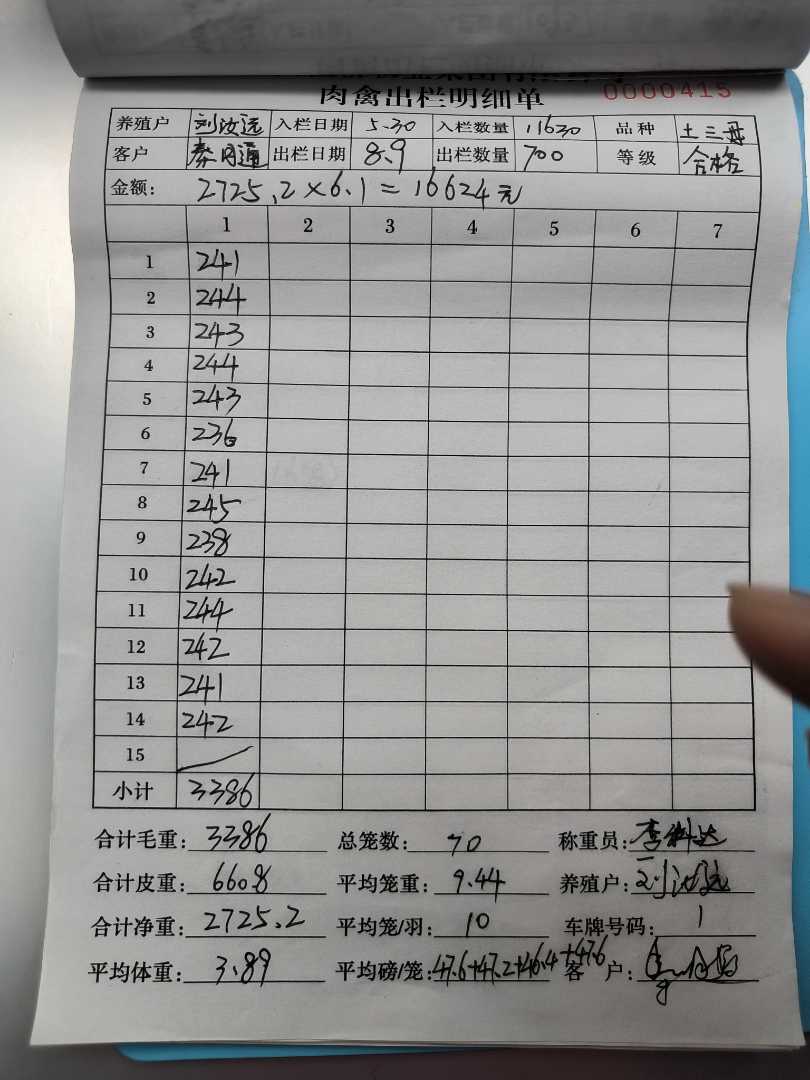 肉禽出栏明细单 0000415
养殖户 刘汝远 入栏日期 5.30 入栏数量 11630 品种 土三母
客户 秦月通 出栏日期 8.9 出栏数量 700 等级 合格
金额: 2725.2×6.1=16624元
1 2 3 4 5 6 7
1 241
2 244
3 243
4 244
5 243
6 236
7 241
8 245
9 238
10 242
11 244
12 242
13 241
14 242
15
小计 3386
合计毛重: 3386 总笼数: 70 称重员: 李科达
合计皮重: 660.8 平均笼重: 9.44 养殖户: 刘汝远
合计净重: 2725.2 平均笼/羽: 10 车牌号码: 1
平均体重: 3.89 平均磅/笼: 47.6+47.2+46.4+47.6 客户: